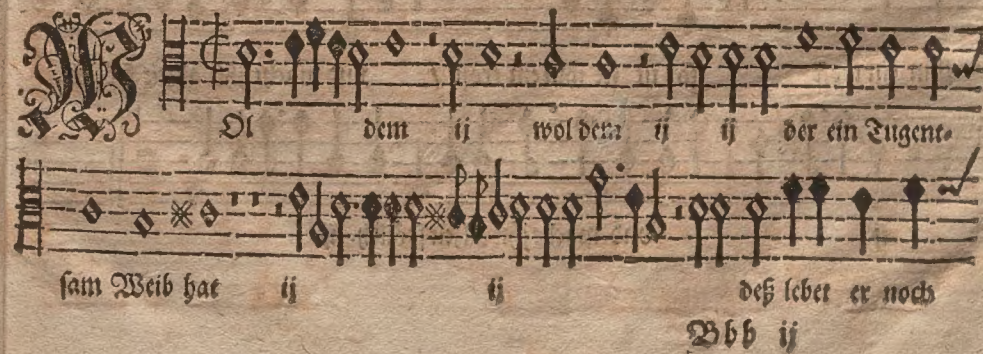 WOl dem ij wol dem ij ij der ein Tugent⸗
ſam Weib hat ij ij deß lebet er noch
Bbb ij